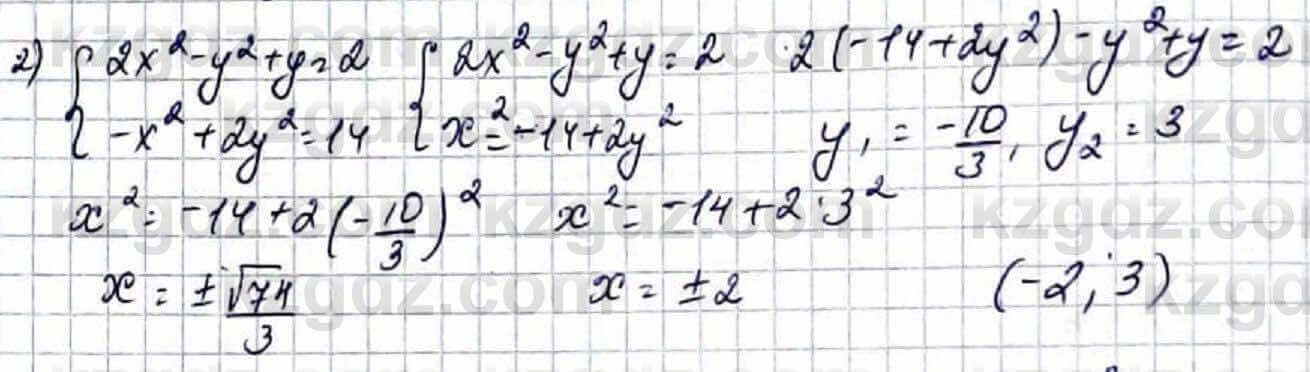 2) { 2x² - y² + y = 2 { 2x² - y² + y = 2 2(-14 + 2y²) - y² + y = 2
{ -x² + 2y² = 14 { x² = -14 + 2y² y₁ = -10/3, y₂ = 3
x² = -14 + 2(-10/3)² x² = -14 + 2·3²
x = ±√74/3 x = ±2 (-2; 3)
kzgdz.com